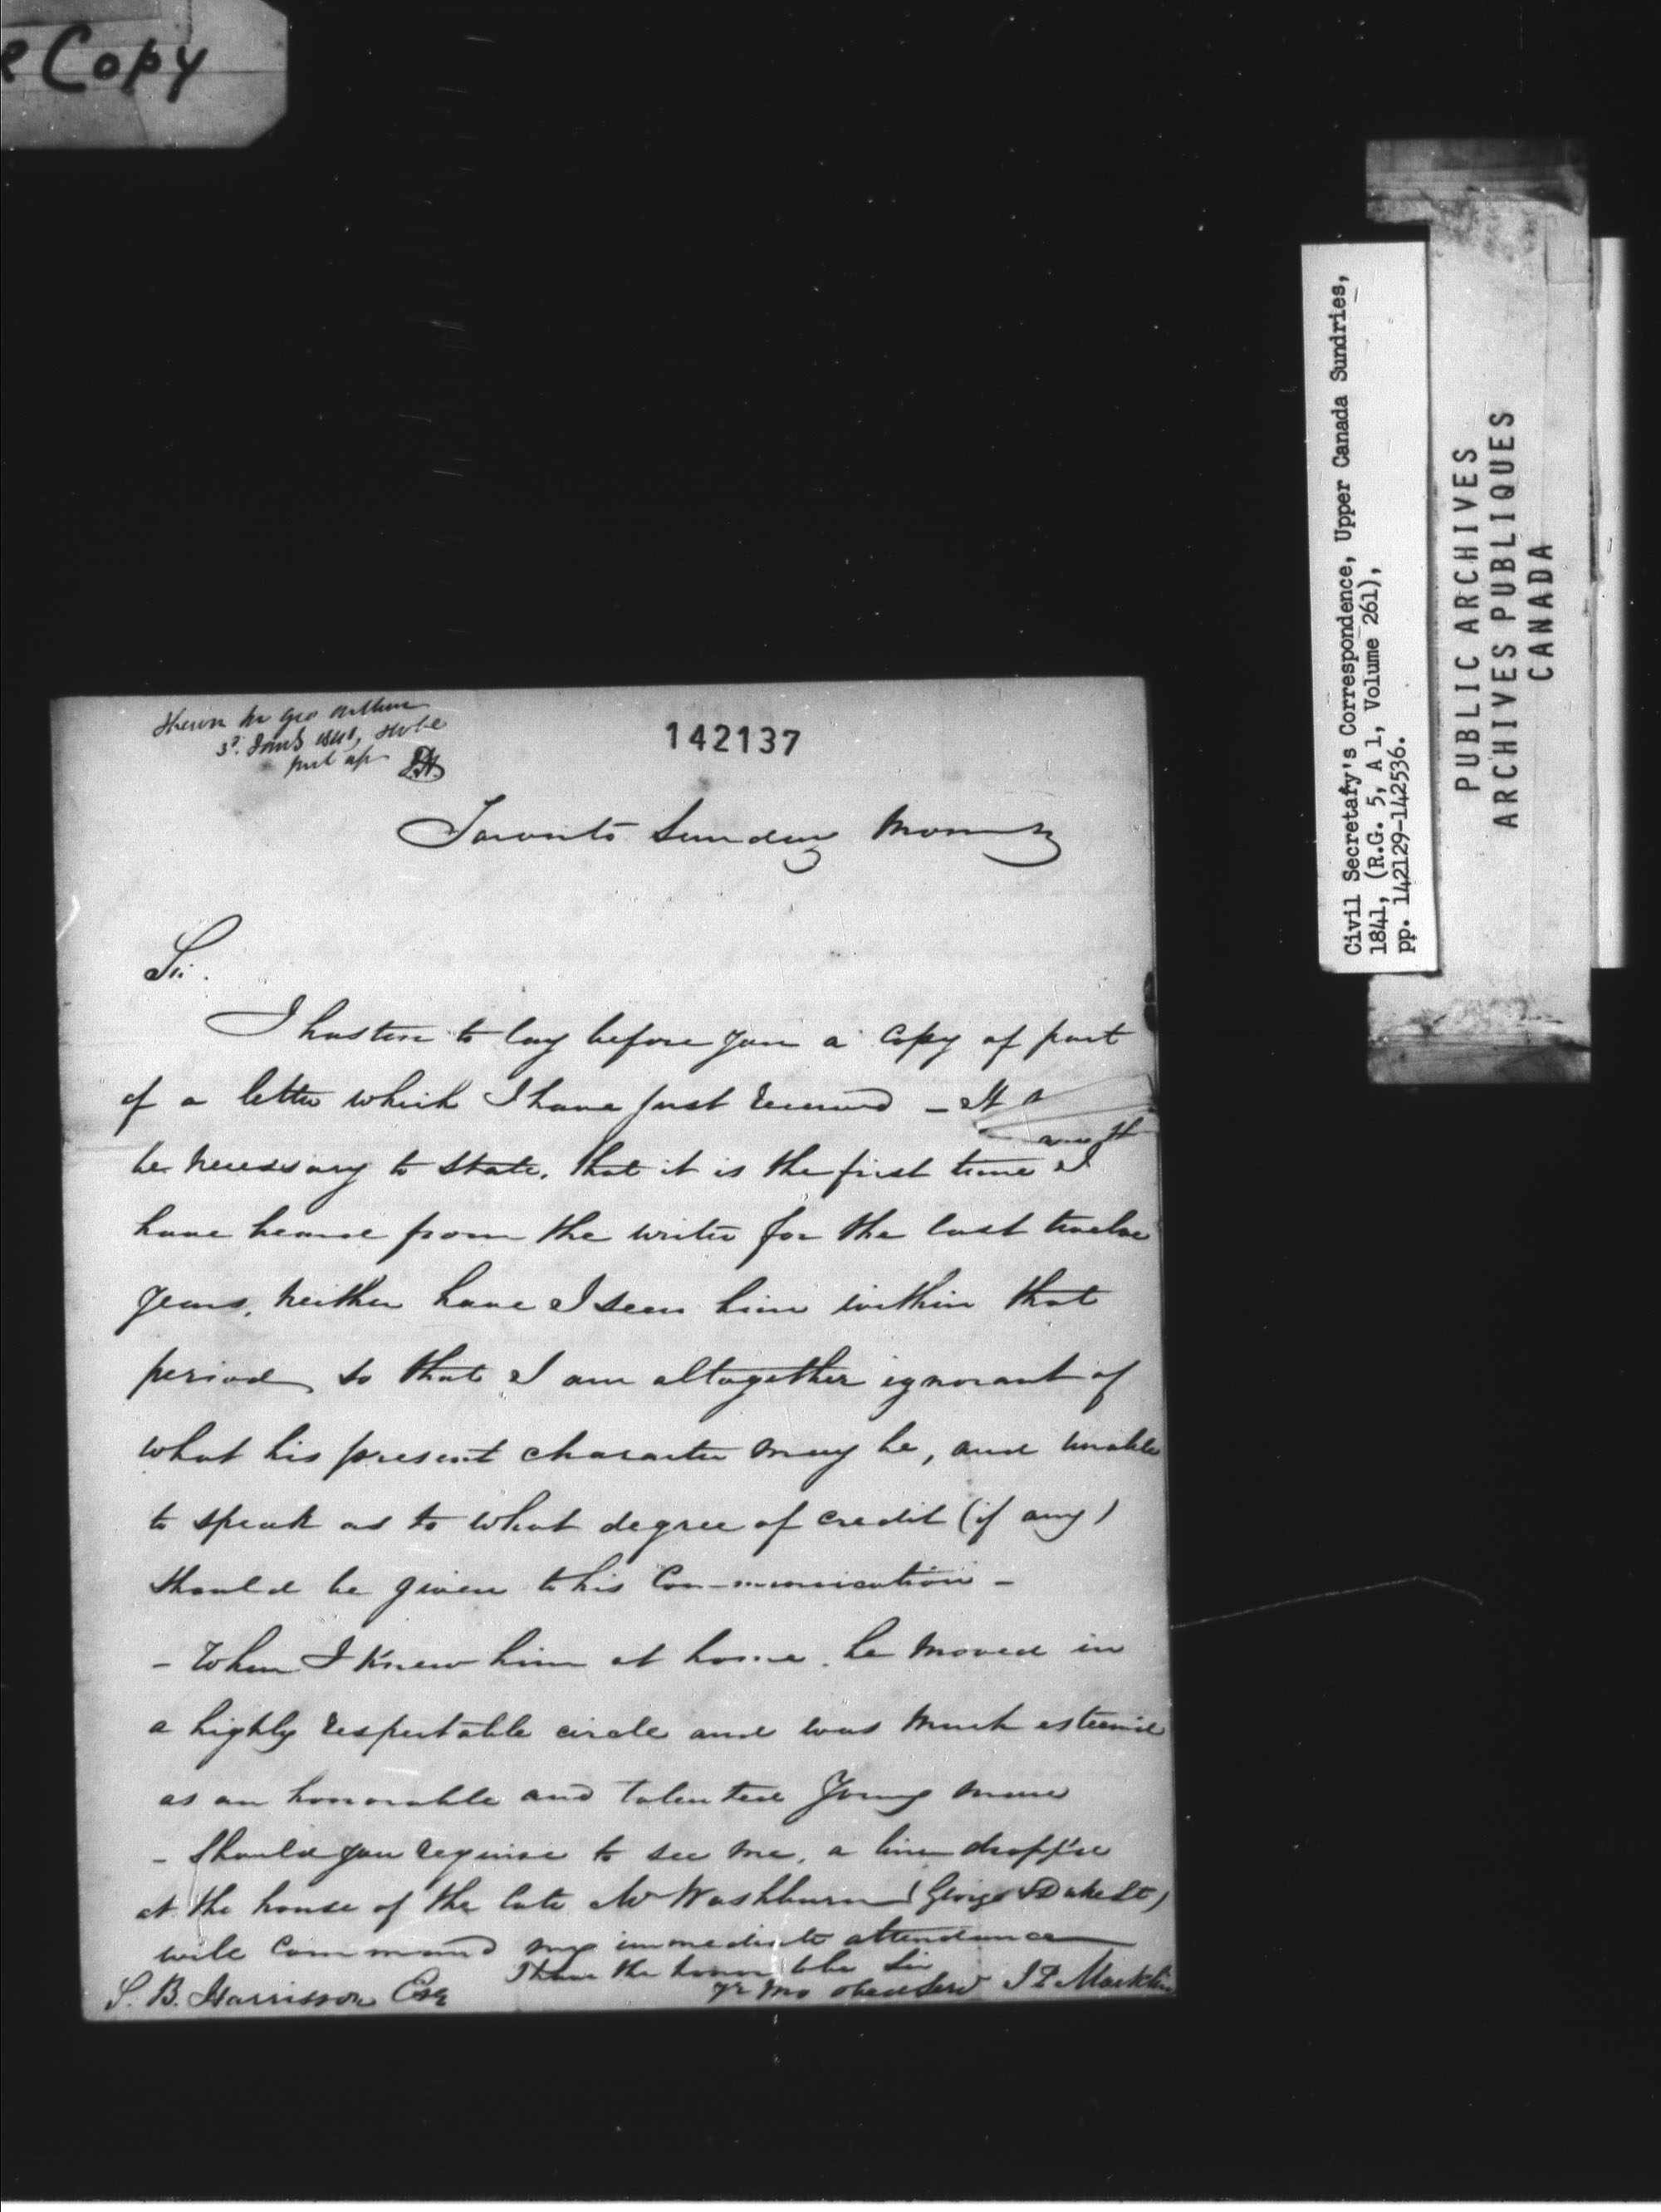 e Copy
Civil Secretary's Correspondence, Upper Canada Sundries,
1841, (R.G. 5, A 1, Volume 261),
pp. 142129-142536.
PUBLIC ARCHIVES
ARCHIVES PUBLIQUES
CANADA
Shewn Sir Geo Arthur
3d. 1841, to be
put up
142137
Toronto Sunday Morng
Sir.
I hasten to lay before you a Copy of part
of a letter which I have just received - It
be necessary to state, that it is the first time I
have heard from the writer for the last twelve
years, neither have I seen him within that
period, so that I am altogether ignorant of
what his present character may be, and unable
to speak as to what degree of credit (if any)
should be given to his Communication -
- When I knew him at home, he moved in
a highly respectable circle and was much esteemed
as an honorable and talented young man
- Should you require to see me, a line dropp'd
at the house of the late Mr Washburn (George & Duke St)
will command my immediate attendance
I have the honor to be Sir
Yr mo obed Serv J P Macklin
S. B. Harrisson Esq